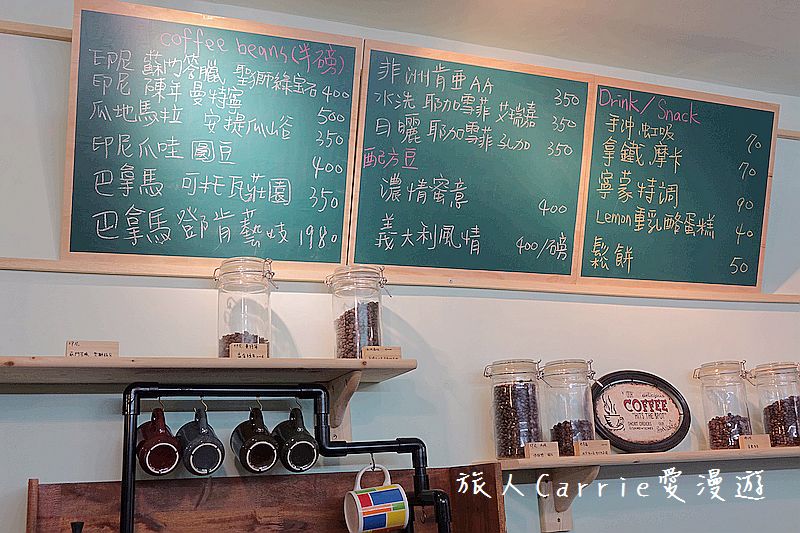 coffee beans(半磅)
印尼 蘇門答臘 聖獅綠宝石 400
印尼 陳年曼特寧 500
瓜地馬拉 安提瓜山谷 350
印尼 爪哇 圓豆 400
巴拿馬 可托瓦莊園 350
巴拿馬 鄧肯藝妓 1980
非洲肯亜AA 350
水洗 耶加雪菲 艾瑞嘉 350
日曬 耶加雪菲 350
配方豆
濃情蜜意 400
義大利風情 400/磅
Drink/Snack
手冲.虹吸 70
拿鐵.摩卡 70
寧蒙特調 90
Lemon重乳酪蛋糕 40
鬆餅 50
COFFEE
"HITS THE SPOT"
旅人Carrie愛漫遊